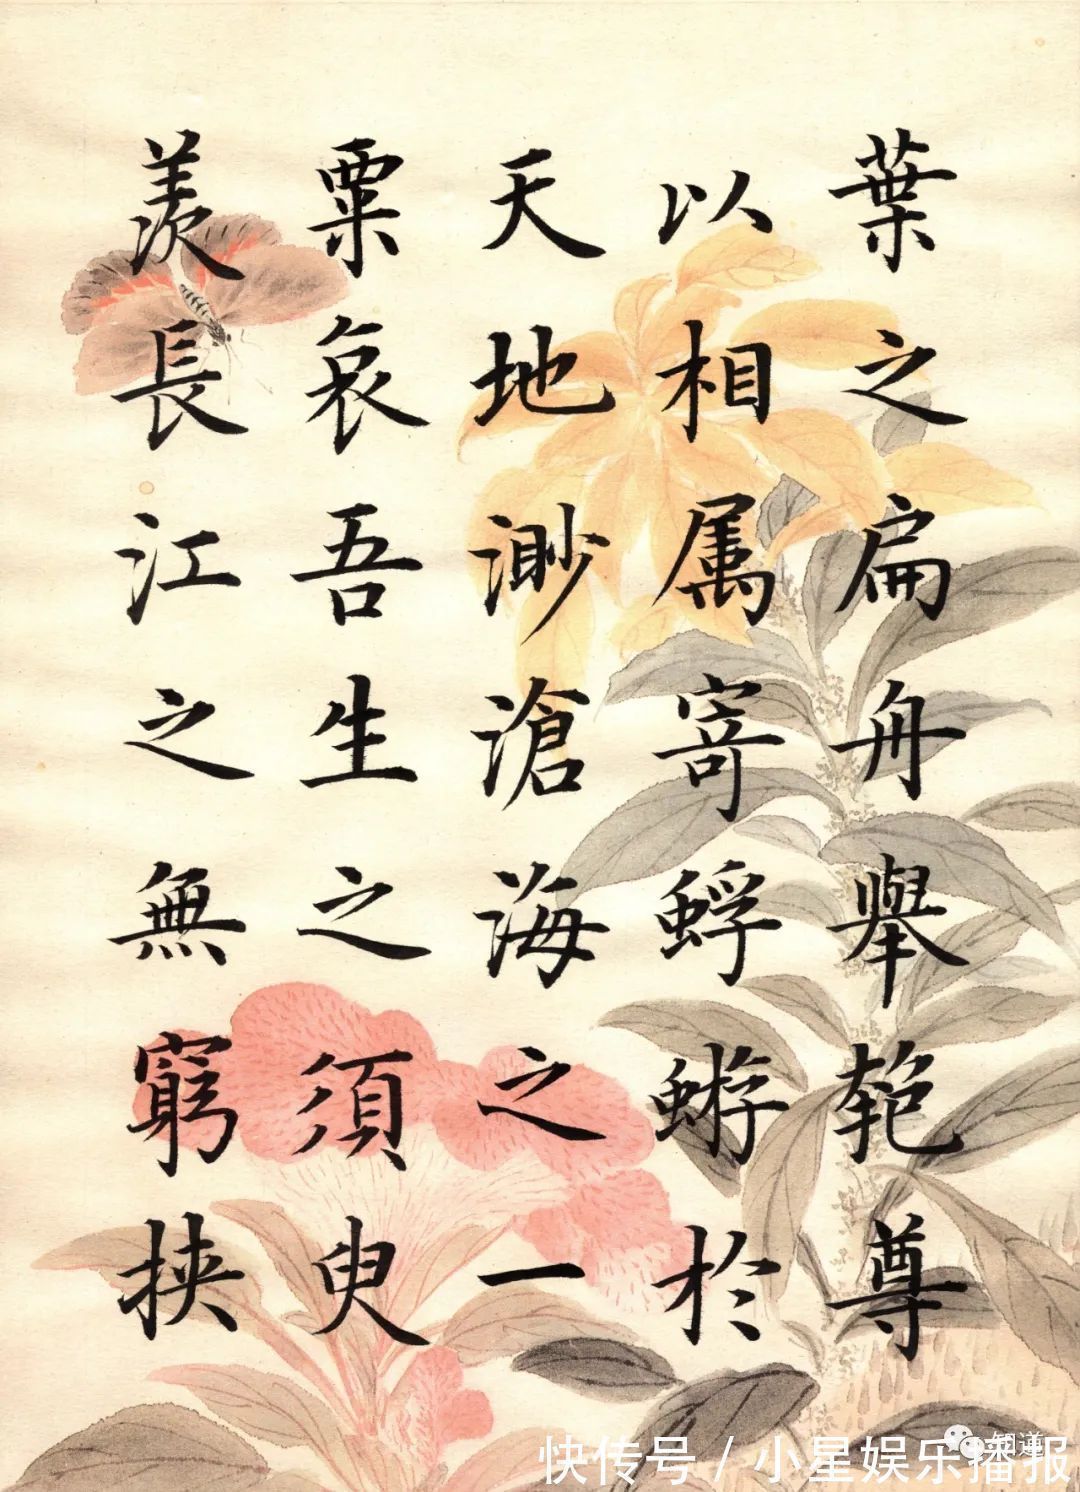 葉之扁舟舉匏尊
以相属寄蜉蝣於
天地渺滄海之一
粟哀吾生之須臾
羨長江之無窮挟
知道
快传号/小星娱乐播报